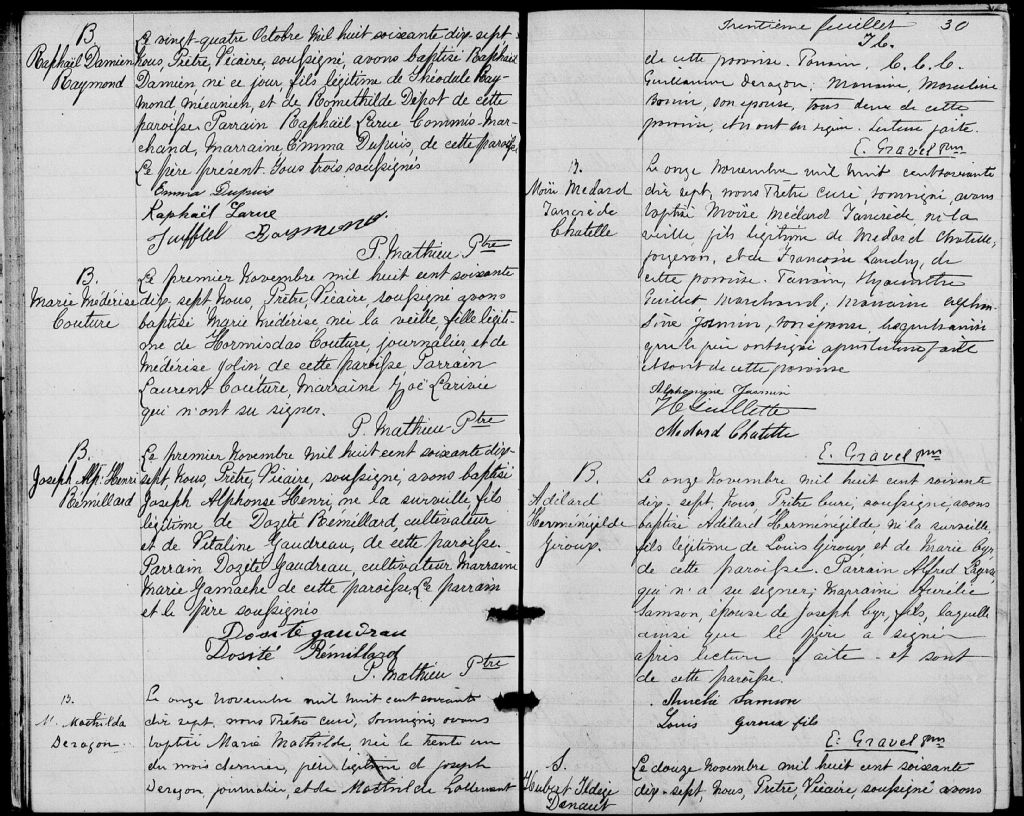 B
Raphaël Damien
Raymond
Le vingt-quatre Octobre mil huit soixante dix sept
Nous, Prêtre, Vicaire, soussigné, avons baptisé Raphaël
Damien, né ce jour, fils légitime de Théodule Ray-
mond mécanien, et de Romethilde Dépot de cette
paroisse Parrain Raphaël Larue Commis-Mar-
chand, Marraine Emma Dupuis, de cette paroisse,
Le père présent. Tous trois soussignés
Emma Dupuis
Raphaël Larue
Raymond
P. Mathieu Ptre
B.
Marie Méderise
Couture
Le premier Novembre mil huit cent soixante
dix-sept Nous, Prêtre, Vicaire, soussigné avons
baptisé Marie Méderise, née la veille fille légiti-
me de Hormisdas Couture, journalier et de
Méderise Jolin de cette paroisse Parrain
Laurent Couture, Marraine Zoë Larivée
qui n'ont su signer.
P. Mathieu Ptre
B.
Joseph Alp. Henri
Rémillard
Le premier Novembre mil huit cent soixante dix-
sept, Nous, Prêtre, Vicaire, soussigné, avons baptisé
Joseph Alphonse Henri, né la surveille, fils
légitime de Dozité Rémillard, cultivateur
et de Vitaline Gaudreau, de cette paroisse.
Parrain Dozité Gaudreau, cultivateur Marraine
Marie Gamache de cette paroisse, Le parrain
et le père soussignés
Dosité gaudrau
Dosité Rémillard
P. Mathieu Ptre
B.
M. Mathilda
Deragon
Le onze Novembre mil huit cent soixante
dix sept, nous Prêtre Curé, soussigné, avons
baptisé Marie Mathilde, née le trente un
du mois dernier, fille légitime de Joseph
Deragon, journalier, et de Mathilde Lallemant
Trentième feuillet 30
de cette paroisse. Parrain,
Guillaume Deragon; Marraine, Marceline
Bonin, son épouse, tous deux de cette
paroisse, et n'ont su signer. Lecture faite.
E. Gravel ptre
B.
Moïse Medard
Tancrède
Chatelle
Le onze Novembre mil huit cent soixante
dix sept, nous Prêtre Curé, soussigné, avons
baptisé Moïse Médard Tancrède né la
veille, fils légitime de Medard Chatelle,
forgeron, et de Francoise Landry, de
cette paroisse. Parrain, Hyacinthe
Marchand; Marraine Alphon-
sine Jasmin, son épouse, laquelle ainsi
que le père ont signé après lecture faite
et sont de cette paroisse
Alphonsine Jasmin
H Guillette
Medard Chatelle
E. Gravel ptre
B.
Adélard
Herménégilde
Giroux.
Le onze Novembre mil huit cent soixante
dix-sept, Nous, Prêtre Curé, soussigné, avons
baptisé Adélard Herménégilde, né la surveille,
fils légitime de Louis Giroux, et de Marie Cyr,
de cette paroisse. Parrain Alfred
qui n'a su signer; Marraine Aurélie
Samson, épouse de Joseph Cyr, fils, laquelle
ainsi que le père a signé
après lecture faite et sont
de cette paroisse.
Aurelie Samson
Louis Giroux fils
E. Gravel ptre
S.
Hubert
Danaut
Le douze Novembre mil huit cent soixante
dix-sept, Nous, Prêtre, Vicaire, soussigné avons